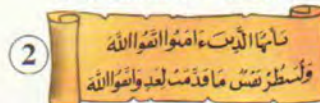 2
يَٰٓأَيُّهَا ٱلَّذِينَ ءَامَنُوا۟ ٱتَّقُوا۟ ٱللَّهَ
وَلۡتَنظُرۡ نَفۡسٞ مَّا قَدَّمَتۡ لِغَدٖۖ وَٱتَّقُوا۟ ٱللَّهَ